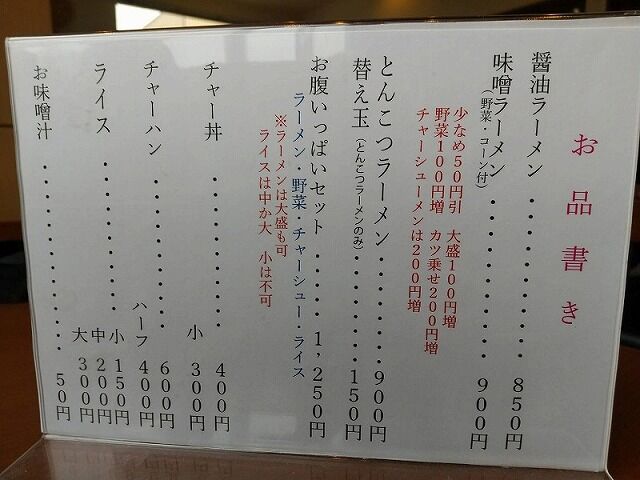 お品書き
醤油ラーメン・・・・・・・・・・・・850円
味噌ラーメン・・・・・・・・・・・・900円
(野菜・コーン付)
少なめ50円引 大盛100円増
野菜100円増 カツ乗せ200円増
チャーシューメンは200円増
とんこつラーメン・・・・・・・・900円
替え玉(とんこつラーメンのみ)・・・・・・・・150円
お腹いっぱいセット・・・・・1,250円
ラーメン・野菜・チャーシュー・ライス
※ラーメンは大盛も可
ライスは中か大 小は不可
チャー丼・・・・・・・・・・・・400円
小 300円
チャーハン・・・・・・・・・・・・600円
ハーフ 400円
ライス・・・・・・・・・・・小 150円
中 200円
大 300円
お味噌汁・・・・・・・・・・・・・・50円